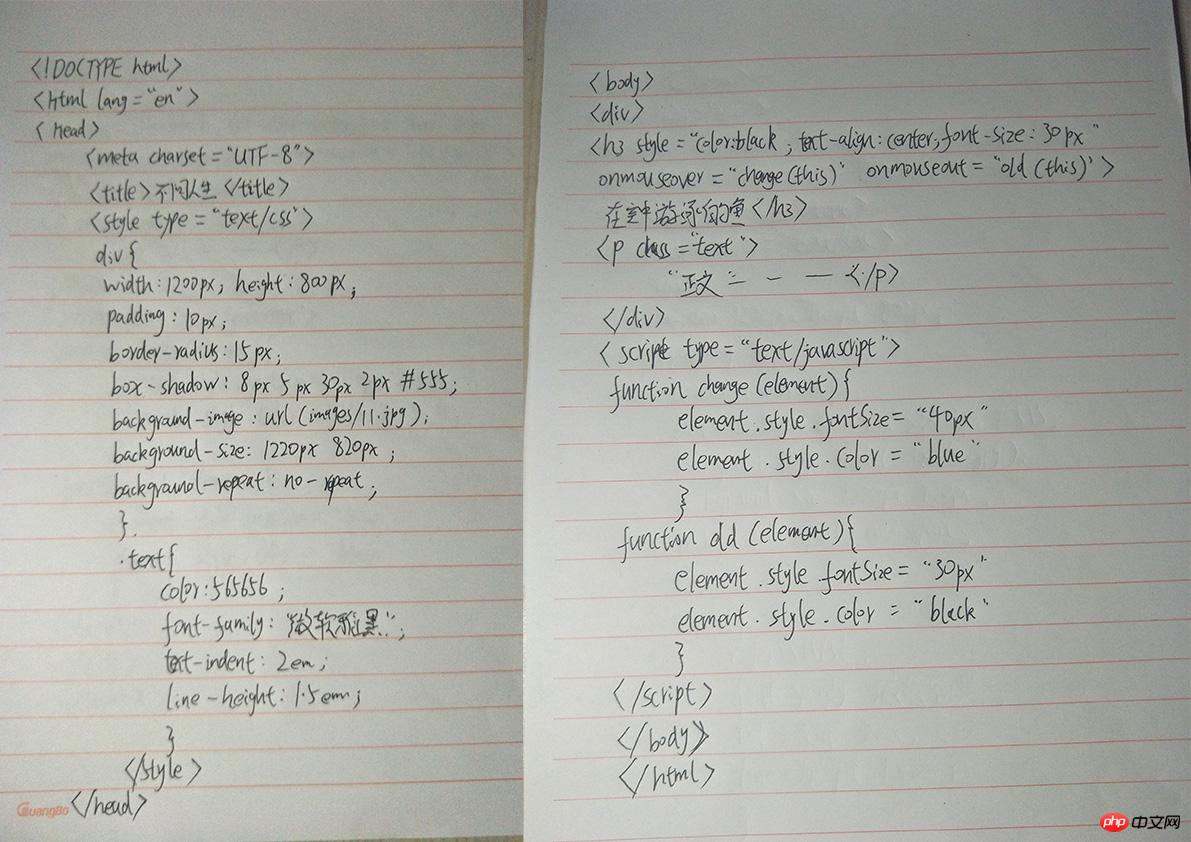 <!DOCTYPE html>
<html lang="en">
<head>
<meta charset="UTF-8">
<title>不问人生</title>
<style type="text/css">
div{
width:1200px, height:800px;
padding:10px;
border-radius:15px;
box-shadow:8px 5px 30px 2px #555;
background-image:url(images/11.jpg);
background-size:1220px 820px;
background-repeat:no-repeat;
}.
.text{
color:565656;
font-family:"微软雅黑";
text-indent:2em;
line-height:1.5em;
}
</style>
</head>
GuangBo
<body>
<div>
<h3 style="color:black;text-align:center;font-size:30px"
onmouseover="change(this)" onmouseout="old(this)">
在空中游泳的鱼</h3>
<p class="text">
"正文二一一</p>
</div>
<script type="text/javascript">
function change(element){
element.style.fontSize="40px"
element.style.color="blue"
}
function old(element){
element.style.fontSize="30px"
element.style.color="black"
}
</script>
</body>
</html>
php中文网